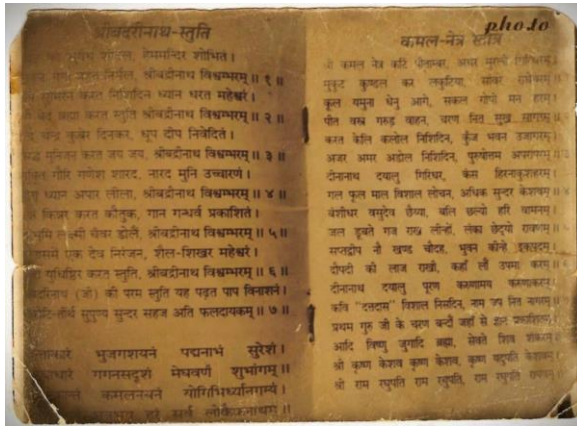 श्रीबदरीनाथ-स्तुति
शीतल, हेममन्दिर शोभितं।
निर्मल, श्रीबद्रीनाथ विश्वम्भरम्॥ १॥
करत निशिदिन ध्यान धरत महेश्वरं।
ब्रह्मा करत स्तुति श्रीबद्रीनाथ विश्वम्भरम्॥ २॥
चन्द्र कुबेर दिनकर, धूप दीप निवेदितं।
मुनिजन करत जय जय, श्रीबद्रीनाथ विश्वम्भरम्॥ ३॥
गौरि गणेश शारद, नारद मुनि उच्चारणं।
ध्यान अपार लीला, श्रीबद्रीनाथ विश्वम्भरम्॥ ४॥
करत कौतुक, गान गन्धर्व प्रकाशितं।
लक्ष्मी चँवर डोलैं, श्रीबद्रीनाथ विश्वम्भरम्॥ ५॥
एक देव निरंजन, शैल-शिखर महेश्वरं।
युधिष्ठिर करत स्तुति, श्रीबद्रीनाथ विश्वम्भरम्॥ ६॥
(जी) की परम स्तुति यह पढ़त पाप विनाशनं।
सुपुण्य सुन्दर सहज अति फलदायकम्॥ ७॥
भुजगशयनं पद्मनाभं सुरेशं।
गगनसदृशं मेघवर्णं शुभांगम्॥
कमलनयनं योगिभिर्ध्यानगम्यं।
photo
कमल-नेत्र स्तोत्र
श्री कमल नेत्र कटि पीताम्बर, अधर मुरली गिरिधरम्।
मुकुट कुण्डल कर लकुटिया, सांवरे राधेवरम्॥
कूल यमुना धेनु आगे, सकल गोपी मन हरम्।
पीत वस्त्र गरुड़ वाहन, चरण नित सुख सागरम्॥
करत केलि कलोल निशिदिन, कुंज भवन उजागरम्।
अजर अमर अडोल निशिदिन, पुरुषोत्तम अपरापरम्॥
दीनानाथ दयालु गिरिधर, कंस हिरनाकुशहरम्।
गल फूल माल विशाल लोचन, अधिक सुन्दर केशवम्॥
बंशीधर वसुदेव छैय्या, बलि छल्यो हरि वामनम्।
जल डूबते गज राख लीन्हों, लंका छेद्यो रावणम्॥
सप्तदीप नौ खण्ड चौदह, भुवन कीनो इकपदम्।
द्रौपदी की लाज राखी, कहाँ लौं उपमा करम्॥
दीनानाथ दयालु पूरण करुणामय करुणाकरम्।
कवि "दत्तदास" विशाल निसदिन, नाम जप नित नागरम्॥
प्रथम गुरु जी के चरण बन्दौं जहाँ से ज्ञान प्रकाशितम्।
आदि विष्णु जुगादि ब्रह्मा, सेवते शिव शंकरम्॥
श्री कृष्ण केशव कृष्ण केशव, कृष्ण यदुपति केशवम्।
श्री राम रघुपति राम रघुपति, राम रघुपति राघवम्॥